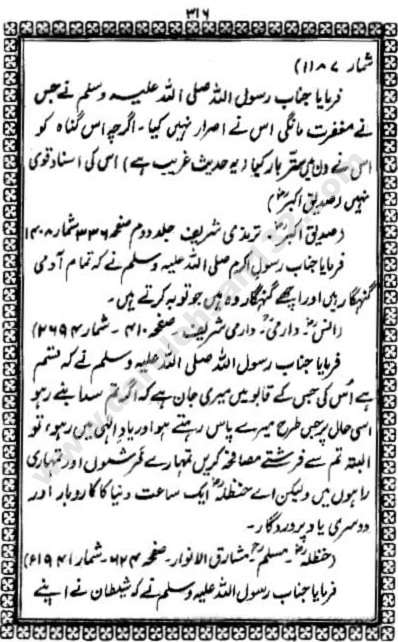 ۳۱۶
شمار ۱۱۸۷)
فرمایا جناب رسول اللہ صلی اللہ علیہ وسلم نے جس
نے مغفرت مانگی اس نے اصرار نہیں کیا۔ اگرچہ اس گناہ کو
اس نے دن میں ستر بار کیا (یہ حدیث غریب ہے) اس کی اسناد قوی
نہیں (صدیق اکبرؓ)
(صدیق اکبرؓ۔ ترمذی شریف جلد دوم صفحہ ۳۳۶ شمار ۱۴۰۸)
فرمایا جناب رسول اکرم صلی اللہ علیہ وسلم نے کہ تمام آدمی
گنہگار ہیں اور اچھے گنہگار وہ ہیں جو توبہ کرتے ہیں۔
(انسؓ۔ دارمیؒ۔ دارمی شریف۔ صفحہ ۴۱۰۔ شمار ۲۶۹۴)
فرمایا جناب رسول اللہ صلی اللہ علیہ وسلم نے کہ قسم
ہے اُس کی جس کے قابو میں میری جان ہے کہ اگر تم سدا بنے رہو
اسی حال پر جس طرح میرے پاس رہتے ہو اور یادِ الٰہی میں رہو، تو
البتہ تم سے فرشتے مصافحہ کریں تمہارے فرشوں اور تمہاری
راہوں میں ولیکن اے حنظلہؓ ایک ساعت دنیا کا کاروبار اور
دوسری یادِ پروردگار۔
(حنظلہؓ۔ مسلمؒ۔ مشارق الانوار۔ صفحہ ۶۲۴۔ شمار ۱۹۴۱)
فرمایا جناب رسول اللہ علیہ وسلم نے کہ شیطان نے اپنے